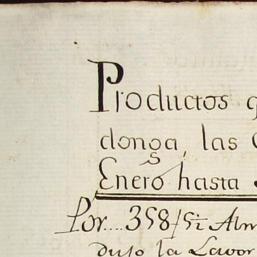 Productos q
donga, las
Enero hasta
Por... 358/5½ Alm
dujo la Lavor